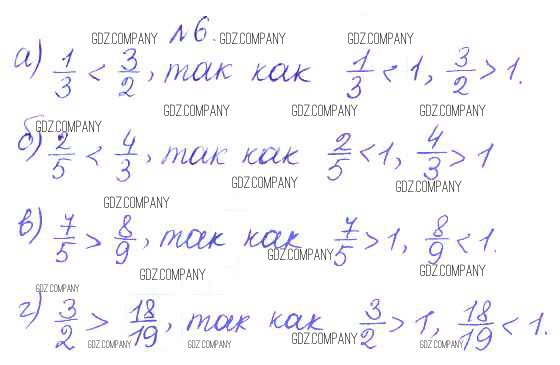 №6.
GDZ.COMPANY GDZ.COMPANY GDZ.COMPANY
а) 1/3 < 3/2, так как 1/3 < 1, 3/2 > 1.
GDZ.COMPANY GDZ.COMPANY GDZ.COMPANY
GDZ.COMPANY
б) 2/5 < 4/3, так как 2/5 < 1, 4/3 > 1
GDZ.COMPANY GDZ.COMPANY
GDZ.COMPANY
в) 7/5 > 8/9, так как 7/5 > 1, 8/9 < 1.
GDZ.COMPANY
GDZ.COMPANY GDZ.COMPANY
GDZ.COMPANY
г) 3/2 > 18/19, так как 3/2 > 1, 18/19 < 1.
GDZ.COMPANY GDZ.COMPANY GDZ.COMPANY GDZ.COMPANY